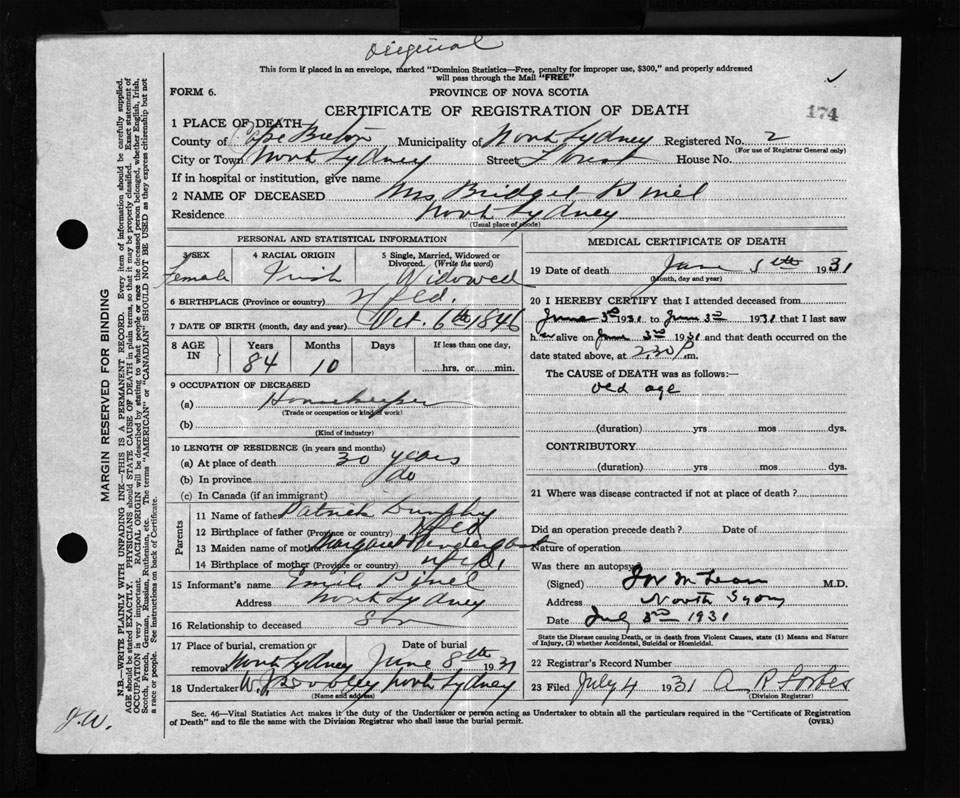 Original
This form if placed in an envelope, marked "Dominion Statistics—Free, penalty for improper use, $300," and properly addressed
will pass through the Mail "FREE"
FORM 6. PROVINCE OF NOVA SCOTIA
174
CERTIFICATE OF REGISTRATION OF DEATH
1 PLACE OF DEATH
County of Cape Breton Municipality of North Sydney Registered No. 2
(For use of Registrar General only)
City or Town North Sydney Street Forest House No.
If in hospital or institution, give name
2 NAME OF DECEASED Mrs Bridget
Residence North Sydney
(Usual place of abode)
PERSONAL AND STATISTICAL INFORMATION
3 SEX 4 RACIAL ORIGIN 5 Single, Married, Widowed or Divorced. (Write the word)
Female Irish Widowed
6 BIRTHPLACE (Province or country) Nfld.
7 DATE OF BIRTH (month, day and year) Oct. 6th 1846
8 AGE IN Years Months Days If less than one day,
84 10 hrs. or min.
9 OCCUPATION OF DECEASED
(a) Housekeeper
(Trade or occupation or kind of work)
(b)
(Kind of industry)
10 LENGTH OF RESIDENCE (in years and months)
(a) At place of death 30 years
(b) In province do
(c) In Canada (if an immigrant)
Parents
11 Name of father Patrick Dunphy
12 Birthplace of father (Province or country) Nfld
13 Maiden name of mother Margaret
14 Birthplace of mother (Province or country) nfld,
15 Informant's name Emile
Address North Sydney
16 Relationship to deceased Son
17 Place of burial, cremation or removal North Sydney Date of burial June 8th 1931
18 Undertaker W. J. Dooley North Sydney
(Name and address)
MEDICAL CERTIFICATE OF DEATH
19 Date of death June 5th 1931
(Month, day and year)
20 I HEREBY CERTIFY that I attended deceased from
June 3rd 1931 to June 3rd 1931 that I last saw
her alive on June 3rd 1931 and that death occurred on the
date stated above, at 2.30 P m.
The CAUSE of DEATH was as follows:—
old age
(duration) yrs mos dys.
CONTRIBUTORY
(duration) yrs mos dys.
21 Where was disease contracted if not at place of death?
Did an operation precede death? Date of
Nature of operation
Was there an autopsy
(Signed) McLean M.D.
Address North Sydny
Date July 3rd 1931
State the Disease causing Death, or in death from Violent Causes, state (1) Means and Nature
of Injury, (2) whether Accidental, Suicidal or Homicidal.
22 Registrar's Record Number
23 Filed July 4 1931 A R Forbes
(Division Registrar)
Sec. 46—Vital Statistics Act makes it the duty of the Undertaker or person acting as Undertaker to obtain all the particulars required in the "Certificate of Registration
of Death" and to file the same with the Division Registrar who shall issue the burial permit. (OVER)
MARGIN RESERVED FOR BINDING
N.B.—WRITE PLAINLY WITH UNFADING INK—THIS IS A PERMANENT RECORD. Every item of information should be carefully supplied.
AGE should be stated EXACTLY. PHYSICIANS should STATE CAUSE OF DEATH in plain terms, so that it may be properly classified. Exact statement of
OCCUPATION is very important. RACIAL ORIGIN will be described by stating to what people or race the deceased person belonged, whether English, Irish,
Scotch, French, German, Russian, Ruthenian, etc. The terms "AMERICAN" or "CANADIAN" SHOULD NOT BE USED as they express citizenship but not
a race or people. See instructions on back of Certificate.
J.W.